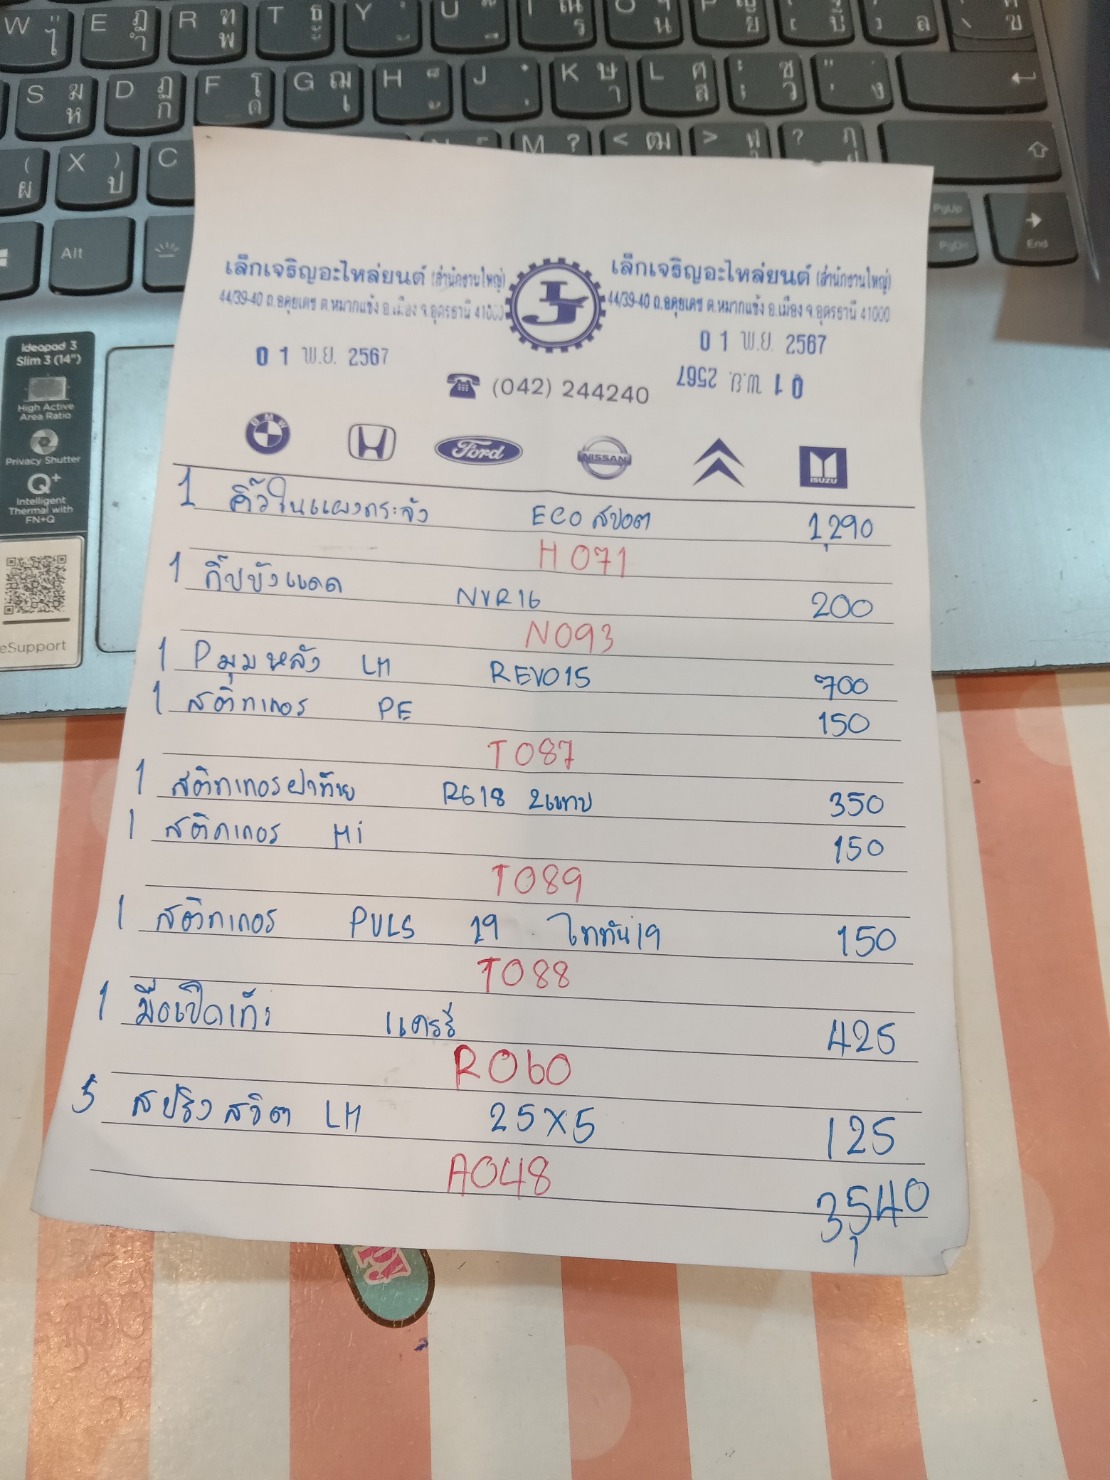 W " ไ
E ฎ ำ
R ฑ พ
T ธ ะ
Y
U
S ฆ ห
D ฏ ก
F โ ด
G ฌ เ
H
J
K ษ า
L ศ ส
ซ ว
. ง
( ผ
X ) ป
C
M ?
< ฒ
>
? ฦ
Alt
PgUp
PgDn
End
ideapad 3
Slim 3 (14")
High Active
Area Ratio
Privacy Shutter
Q+
Intelligent
Thermal with
FN+Q
eSupport
เล็กเจริญอะไหล่ยนต์ (สำนักงานใหญ่)
44/39-40 ถ.อดุยเดช ต.หมากแข้ง อ.เมือง จ.อุดรธานี 41000
0 1 พ.ย. 2567
LJ
เล็กเจริญอะไหล่ยนต์ (สำนักงานใหญ่)
44/39-40 ถ.อดุยเดช ต.หมากแข้ง อ.เมือง จ.อุดรธานี 41000
0 1 พ.ย. 2567
0 1 พ.ย. 2567
☎ (042) 244240
BMW
Ford
NISSAN
ISUZU
1 คิ้วในแผงกระจัง ECO สปอต 1,290
H071
1 กิ๊ปบังแดด NVR16 200
N093
1 Pมุมหลัง LH REVO15 700
1 สติกเกอร PE 150
T087
1 สติกเกอรฝาท้าย RG18 2แทบ 350
1 สติกเกอร Hi 150
T089
1 สติกเกอร PULS 19 ไททัน19 150
T088
1 มือเปิดเก๊ะ แครรี่ 425
R060
5 สปริงสวิต LH 25x5 125
A048
3,540